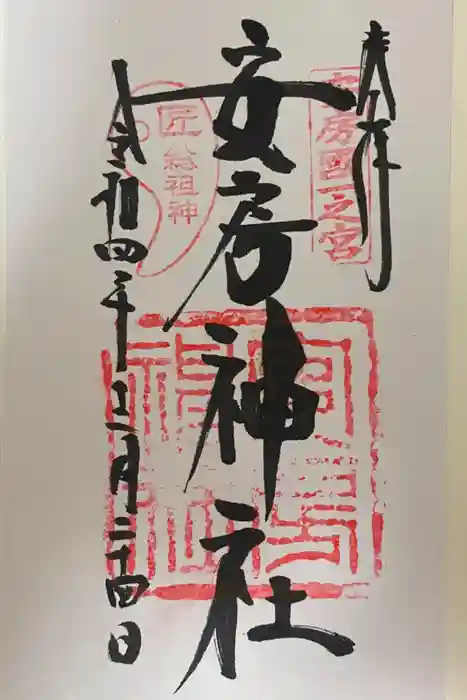 奉拝
安房國一之宮
安房神社
匠総祖神
令和四年十二月二十四日
安房神社